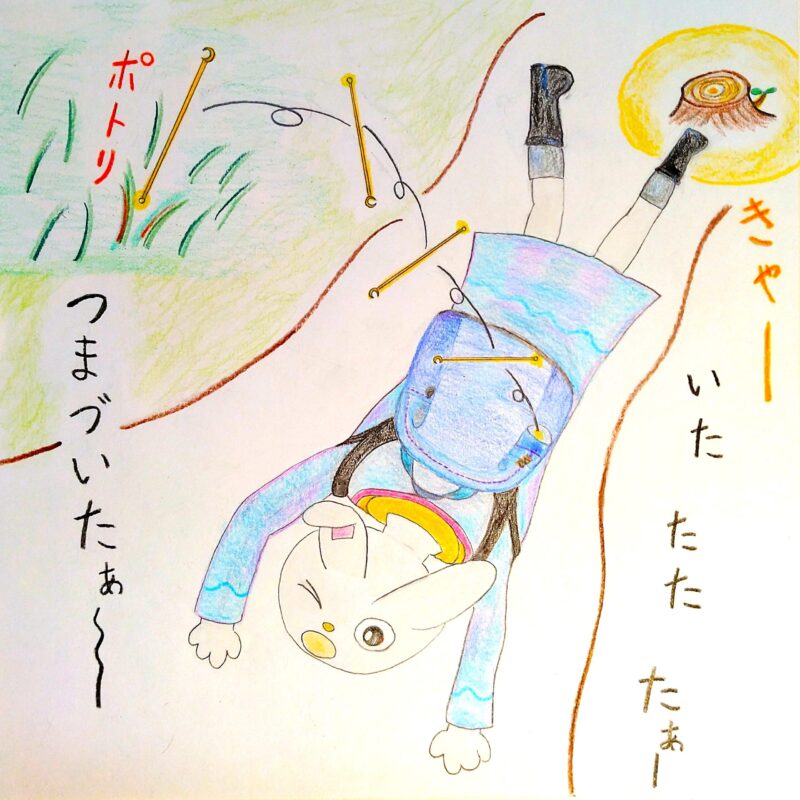 きゃー
いた
たた
たぁー
ポトリ
つまづいたぁ〜〜